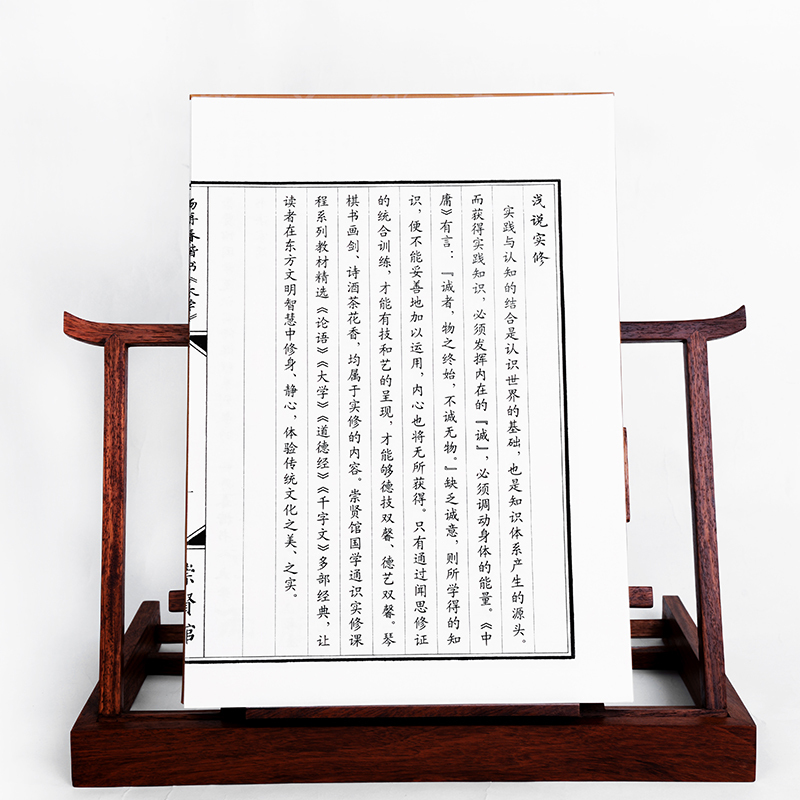 浅说实修
实践与认知的结合是认识世界的基础，也是知识体系产生的源头。
而获得实践知识，必须发挥内在的『诚』，必须调动身体的能量。《中
庸》有言：『诚者，物之终始，不诚无物。』缺乏诚意，则所学得的知
识，便不能妥善地加以运用，内心也将无所获得。只有通过闻思修证
的统合训练，才能有技和艺的呈现，才能够德技双馨、德艺双馨。琴
棋书画剑、诗酒茶花香，均属于实修的内容。崇贤馆国学通识实修课
程系列教材精选《论语》《大学》《道德经》《千字文》多部经典，让
读者在东方文明智慧中修身、静心，体验传统文化之美、之实。
楷书《大学》
一
崇贤馆